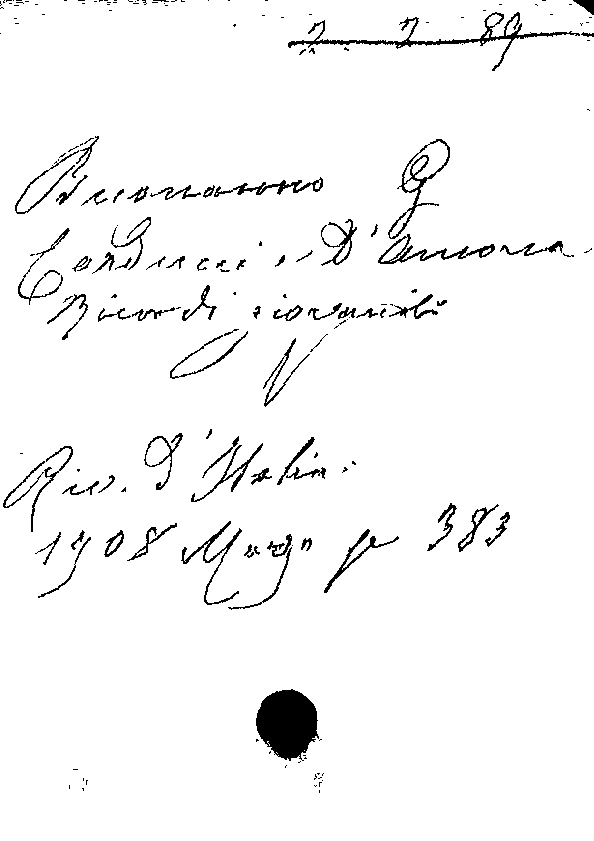 2 2 89
Buonanno G
Carducci e D'Ancona
Ricordi giovanili
Riv. d'Italia.
1908 Magg° p 383